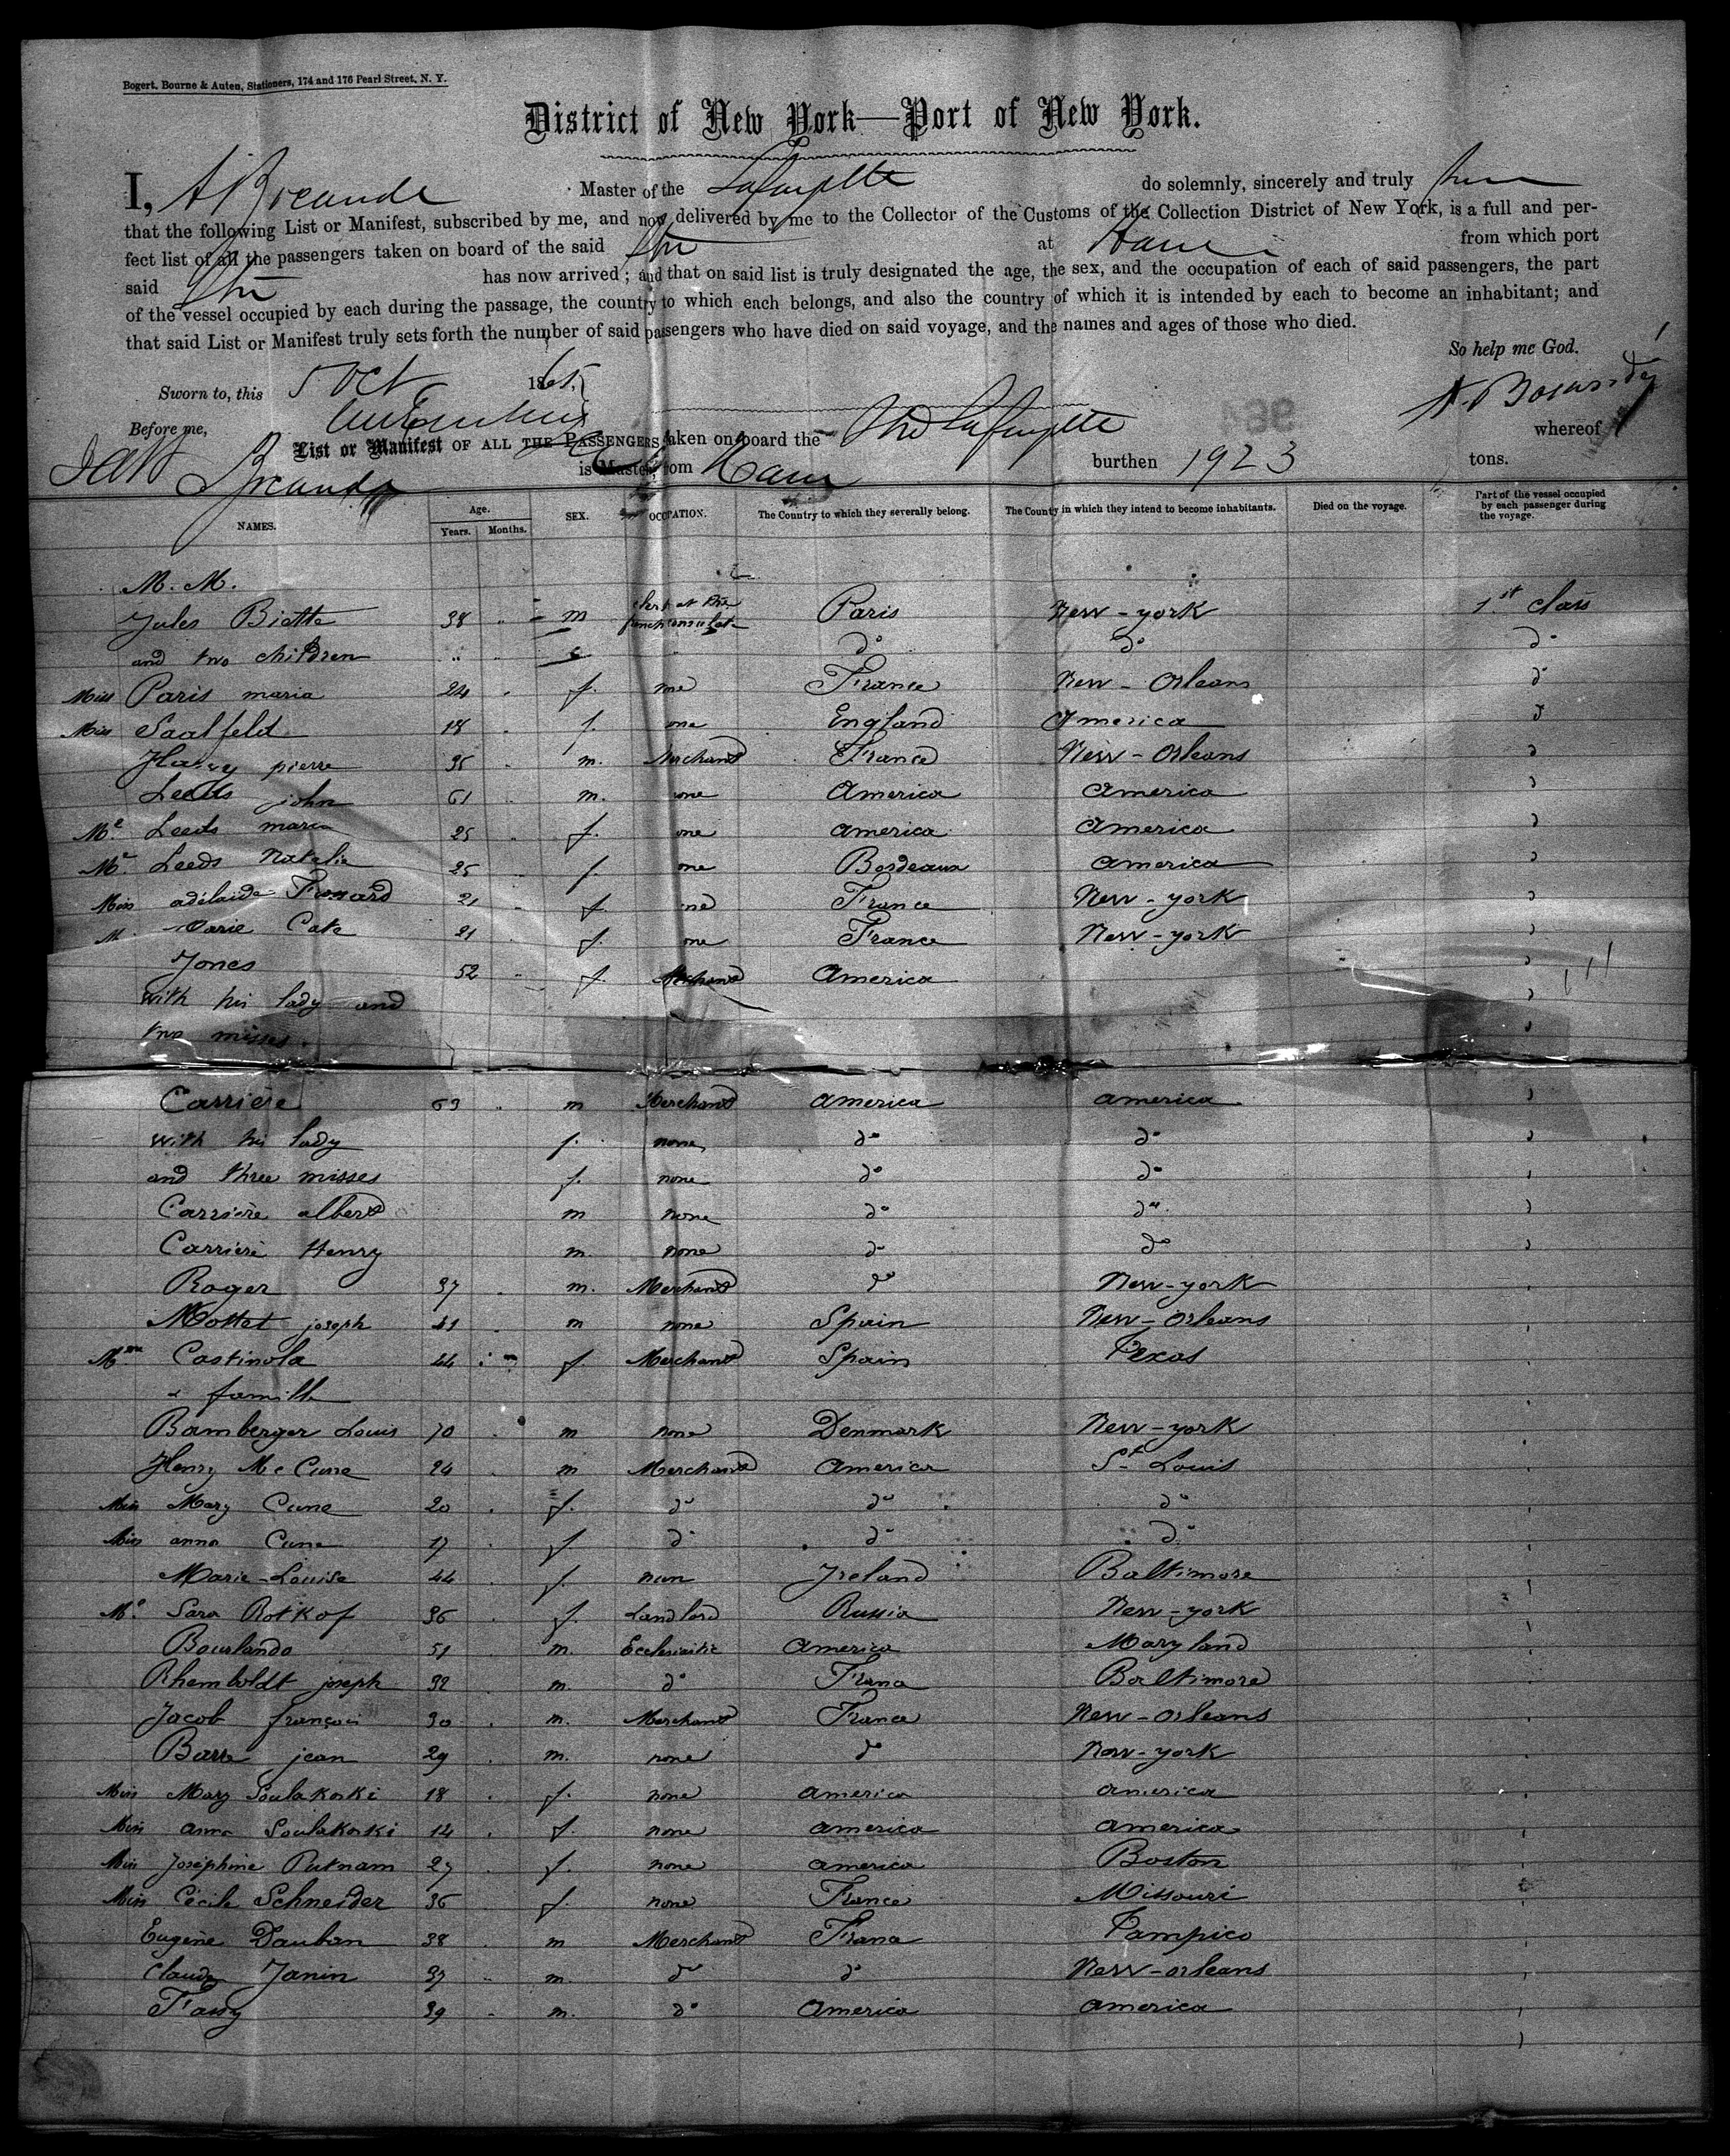 Bogert, Bourne & Auten, Stationers, 174 and 176 Pearl Street, N. Y.
District of New York—Port of New York.
I, Master of the Lafayette do solemnly, sincerely and truly
that the following List or Manifest, subscribed by me, and now delivered by me to the Collector of the Customs of the Collection District of New York, is a full and per-
fect list of all the passengers taken on board of the said Str at Havre from which port
said Str has now arrived; and that on said list is truly designated the age, the sex, and the occupation of each of said passengers, the part
of the vessel occupied by each during the passage, the country to which each belongs, and also the country of which it is intended by each to become an inhabitant; and
that said List or Manifest truly sets forth the number of said passengers who have died on said voyage, and the names and ages of those who died.
So help me God.
Sworn to, this 5 Oct 1865
Before me,
List or Manifest OF ALL THE PASSENGERS taken on board the Str Lafayette whereof
is Master, from Havre burthen 1923 tons.
NAMES. Age. Years. Months. SEX. OCCUPATION. The Country to which they severally belong. The County in which they intend to become inhabitants. Died on the voyage. Part of the vessel occupied by each passenger during the voyage.
M. M.
Jules Biette 38 " m clerk at the french consulate Paris New-york 1st class
and two children " " do do do
Miss Paris maria 24 f. France New-Orleans do
Miss Saalfeld 18 f. England America d
pierre 35 m. Merchand France New-Orleans d
Leeds john 61 m. none America America d
Me Leeds maria 25 f. none america America d
Me Leeds Natalie 25 f. none Bordeaux america d
Miss adélaide 21 f. France New-york d
Marie Cate 21 f. none France New-york d
Jones 52 f. Merchand America d
with his lady and d
two misses. d
Carrière 63 m Merchand america america d
with his lady f. none do do d
and three misses f. none do do
Carrière albert m none do do d
Carrière Henry m. none do do d
Roger 37 m. Merchand do New-york
Mottet joseph 41 m none Spain New-Orleans
Mme Castinola 44 f Merchand Spain Texas
& famille
Bamberger Louis 70 m none Denmark New-york
Henry Mc Cune 24 m Merchand America St Louis
Miss Mary Cune 20 f. do do do
Miss anna Cune 17 f do do do
Marie-Louise 44 f. nun Ireland Baltimore
Me Sara Rotkof 36 f. Landlord Russia New-york
Bourlando 51 m. Ecclesiastic America Maryland
Rhemboldt joseph 32 m. do France Baltimore
Jacob françois 30 m. Merchand France New-Orleans
Barre jean 29 m. none do New-york
Miss Mary Soulakoski 18 f. none america america
Miss anna Soulakoski 14 f. none america america
Miss Joséphine Putnam 27 f. none america Boston
Miss Cécile Schneider 36 f. none France Missouri
Eugène Dauban 38 m Merchand France Tampico
Claude Janin 37 m. do do New-orleans
39 m. do America america